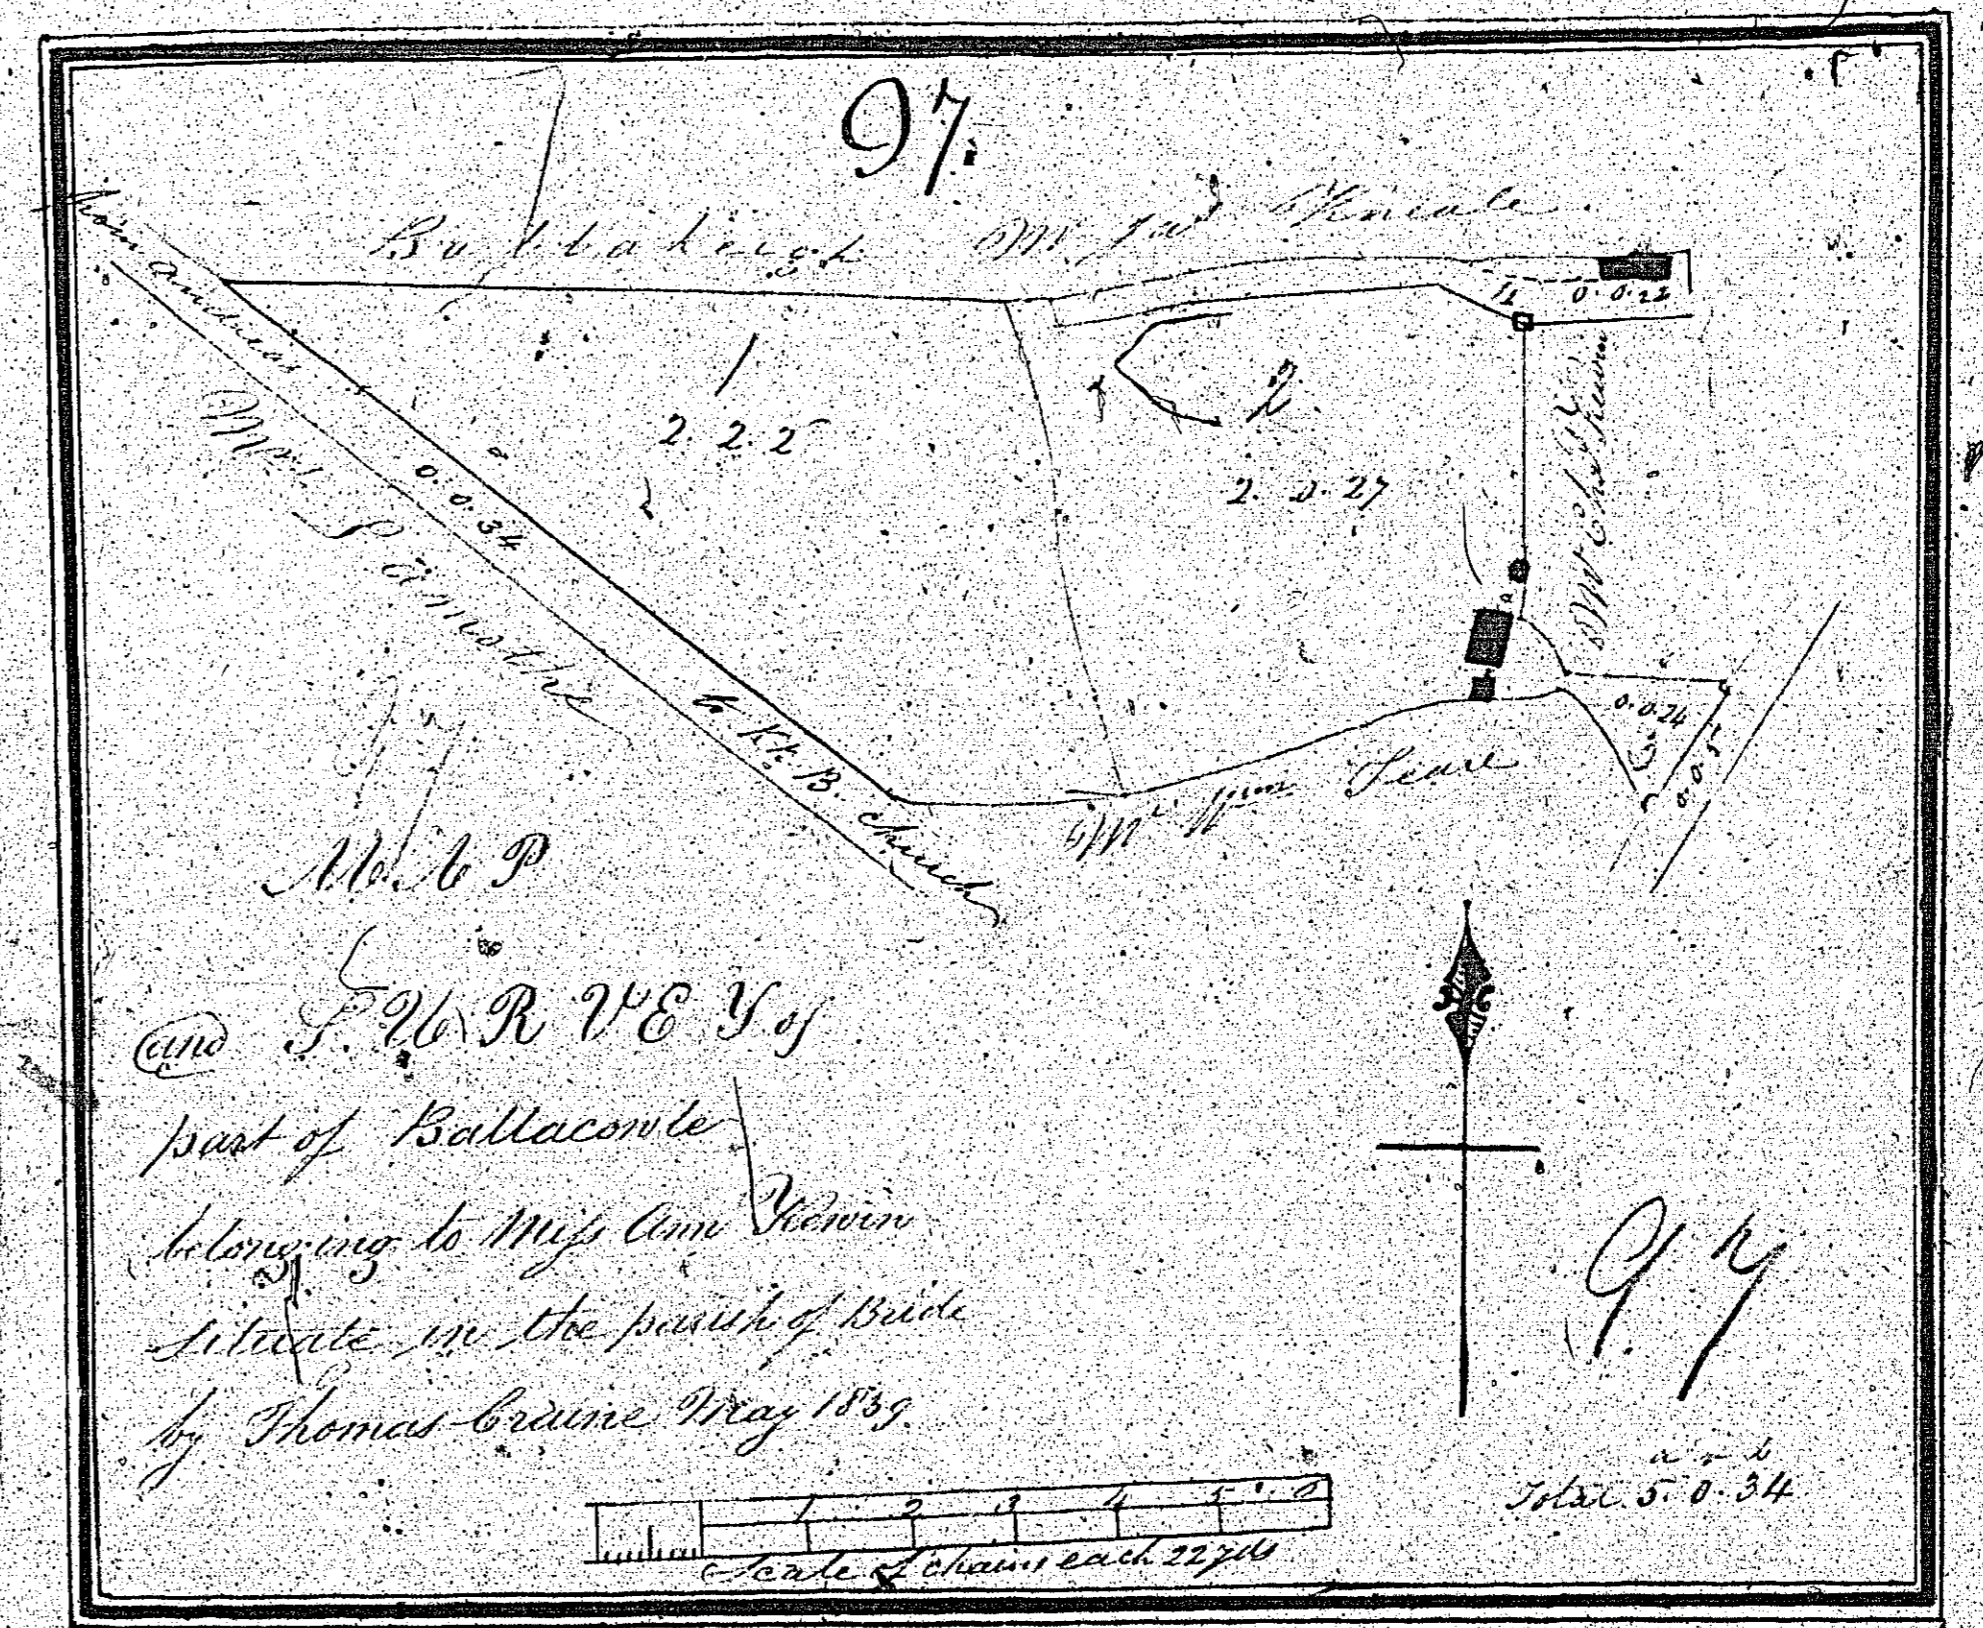 97
Mr
Kneale
from Andreas
4 0. 0. 22
1
2. 2. 2
2
2. 0. 27
0. 0. 34
Mrs Lamothe
Mr Kewin
to Kk B. Church
0. 0. 24
3
0. 0. 5
Mr Wm Teare
MAP
and SURVEY of
part of Ballacowle
belonging to Miss Ann Kewin
Situate in the parish of Bride
by Thomas Craine May 1839
97
a r
Total 5. 0. 34
1 2 3 4 5 6
Scale of chains each 22 yds